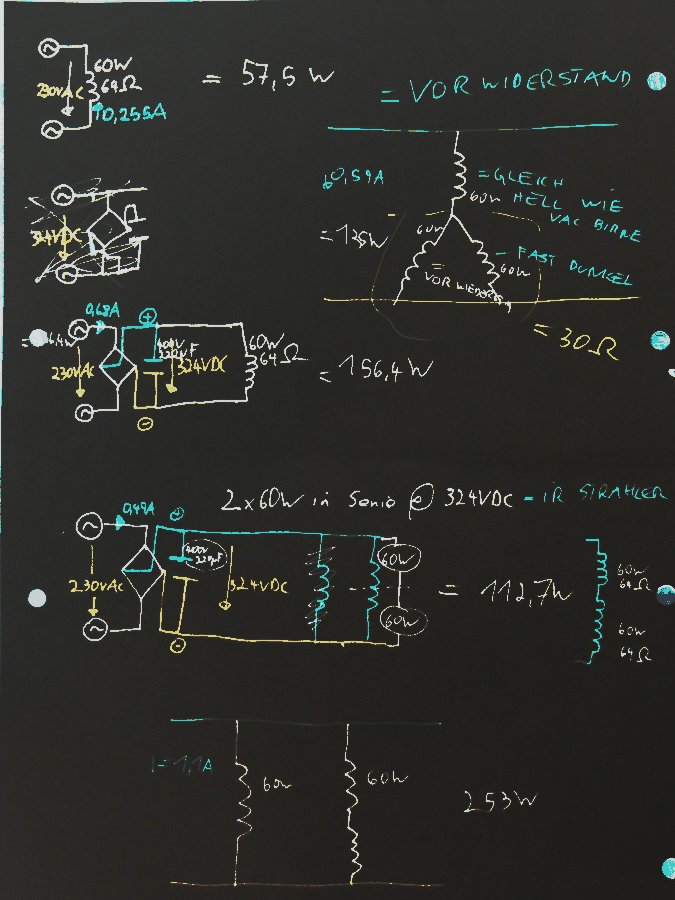 60W
64Ω
230VAC
0,255A
= 57,5 W
= VORWIDERSTAND
0,59A
= GLEICH
HELL WIE
VAC BIRNE
60W
= 125W
60W
- FAST DUNKEL
60W
=
VOR WIEDERS
= 30Ω
324VDC
0,68A
+
400V
220µF
60W
64Ω
230VAC
324VDC
= 156,4 W
-
2x60W in Serie @ 324VDC - IR STRAHLER
0,49A
+
400V
220µF
60W
230VAC
324VDC
= 112,7W
60W
64Ω
60W
60W
64Ω
-
I=1,1A
60W
60W
253W